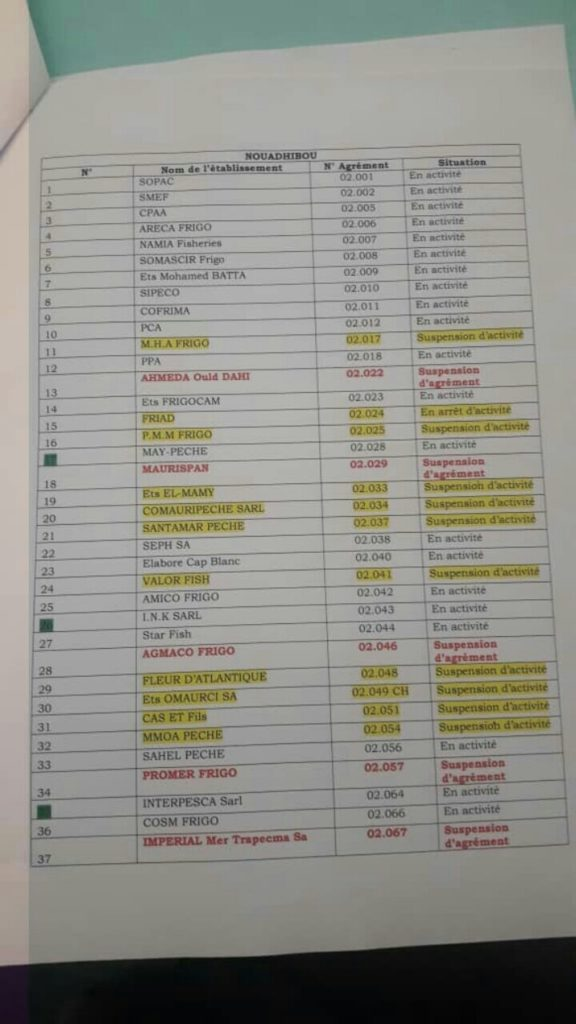 NOUADHIBOU
N° Nom de l'établissement N° Agrément Situation
1 SOPAC 02.001 En activité
2 SMEF 02.002 En activité
3 CPAA 02.005 En activité
4 ARECA FRIGO 02.006 En activité
5 NAMIA Fisheries 02.007 En activité
6 SOMASCIR Frigo 02.008 En activité
7 Ets Mohamed BATTA 02.009 En activité
8 SIPECO 02.010 En activité
9 COFRIMA 02.011 En activité
10 PCA 02.012 En activité
11 M.H.A FRIGO 02.017 Suspension d'activité
12 PPA 02.018 En activité
13 AHMEDA Ould DAHI 02.022 Suspension
d'agrément
14 Ets FRIGOCAM 02.023 En activité
15 FRIAD 02.024 En arrêt d'activité
16 P.M.M FRIGO 02.025 Suspension d'activité
MAY-PECHE 02.028 En activité
18 MAURISPAN 02.029 Suspension
d'agrément
19 Ets EL-MAMY 02.033 Suspension d'activité
20 COMAURIPECHE SARL 02.034 Suspension d'activité
21 SANTAMAR PECHE 02.037 Suspension d'activité
22 SEPH SA 02.038 En activité
23 Elabore Cap Blanc 02.040 En activité
24 VALOR FISH 02.041 Suspension d'activité
25 AMICO FRIGO 02.042 En activité
26 I.N.K SARL 02.043 En activité
27 Star Fish 02.044 En activité
28 AGMACO FRIGO 02.046 Suspension
d'agrément
29 FLEUR D'ATLANTIQUE 02.048 Suspension d'activité
30 Ets OMAURCI SA 02.049 CH Suspension d'activité
31 CAS ET Fils 02.051 Suspension d'activité
32 MMOA PECHE 02.054 Suspension d'activité
33 SAHEL PECHE 02.056 En activité
34 PROMER FRIGO 02.057 Suspension
d'agrément
INTERPESCA Sarl 02.064 En activité
36 COSM FRIGO 02.066 En activité
37 IMPERIAL Mer Trapecma Sa 02.067 Suspension
d'agrément